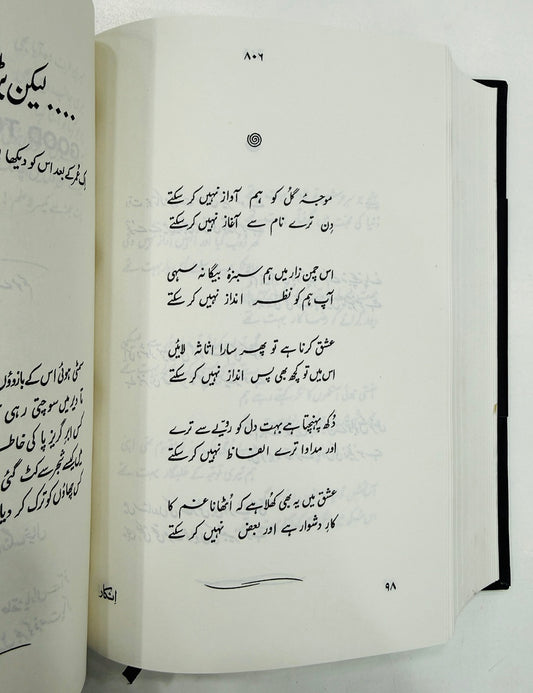 ۸۰۶
موجۂ گل کو ہم آواز نہیں کر سکتے
دن ترے نام سے آغاز نہیں کر سکتے
اس چمن زار میں ہم سبزۂ بیگانہ سہی
آپ ہم کو نظر انداز نہیں کر سکتے
عشق کرنا ہے تو پھر سارا اثاثہ لائیں
اس میں تو کچھ بھی پس انداز نہیں کر سکتے
دکھ پہنچتا ہے بہت دل کو رویّے سے ترے
اور مداوا ترے الفاظ نہیں کر سکتے
عشق میں یہ بھی کھلا ہے کہ اٹھانا غم کا
کارِ دشوار ہے اور بعض نہیں کر سکتے
۹۸
انکار
.... لیکن
کی عمر کے بعد اس کو دیکھا
سمٹی ہوئی اس کے بازوؤں
تا دیر میں سوچتی رہی
کس ابر گریز پا کی خاطر
میں کیسے شجر سے کٹ گئی
کس چھاؤں کو ترک کر دیا